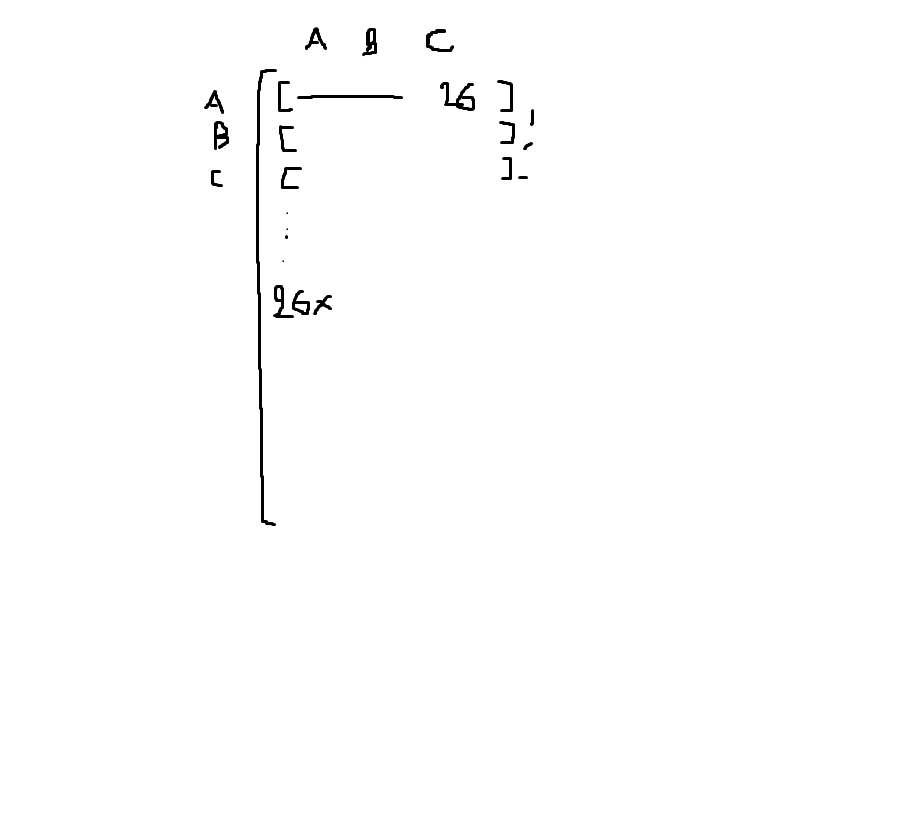 A B C
A [ —— 26 ]
B [ ],
C [ ].
26x